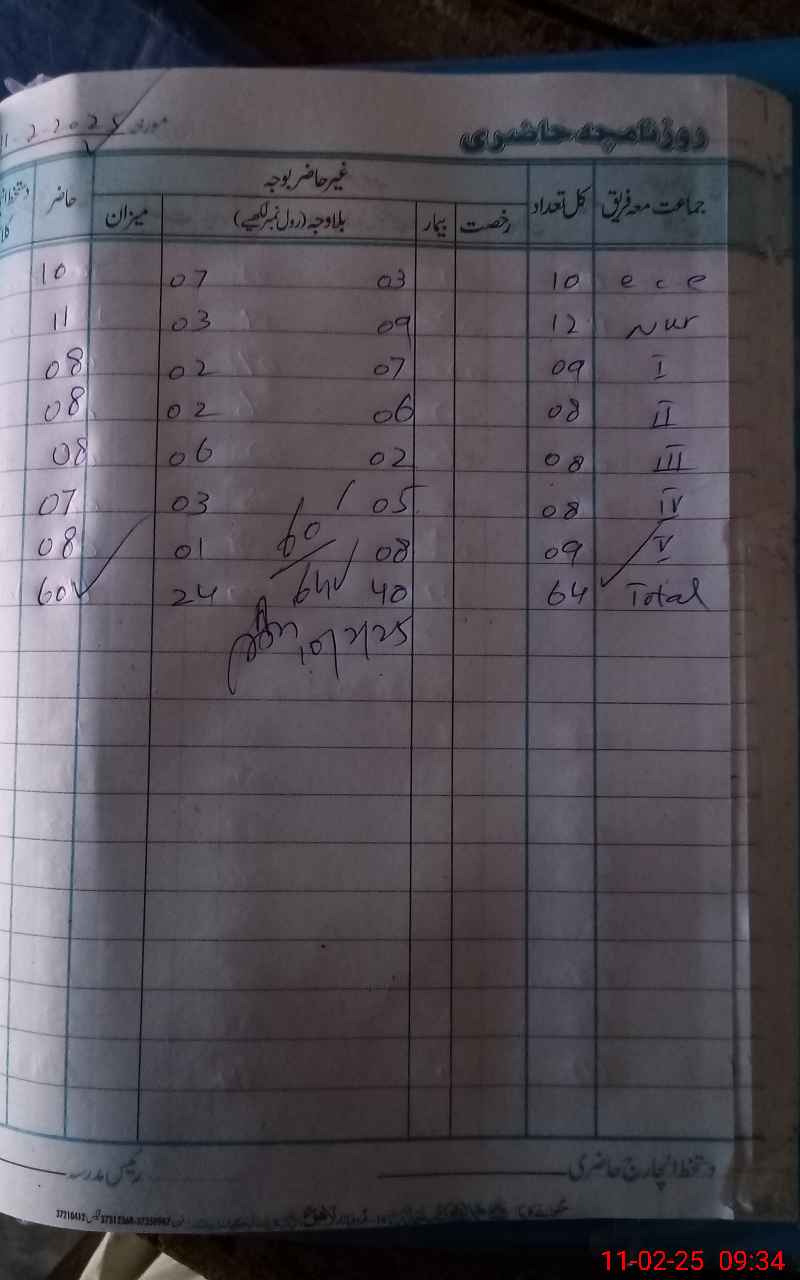 روزنامچہ حاضری
مورخہ 11.2.2025
جماعت معہ فریق کل تعداد غیر حاضر بوجہ حاضر
رخصت بیمار بلاوجہ (رول نمبر لکھیے) میزان
e c e 10 03 07 10
Nur 12 09 03 11
I 09 07 02 08
II 08 06 02 08
III 08 02 06 08
IV 08 05 03 07
V 09 08 01 08
Total 64 40 24 60
60
64
10/2/25
دستخط انچارج حاضری رئیس مدرسہ
37210412 37312368-37350947
11-02-25 09:34